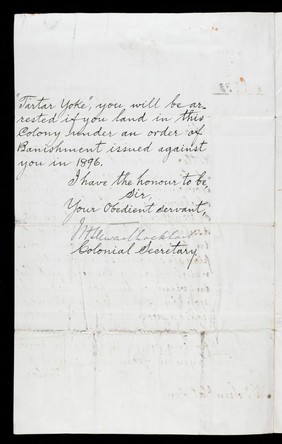 "Tartar Yoke", you will be ar-
rested if you land in this
Colony under an order of
Banishment issued against
you in 1896.
I have the honour to be
Sir,
Your Obedient Servant,
Stewart Lockhart
Colonial Secretary